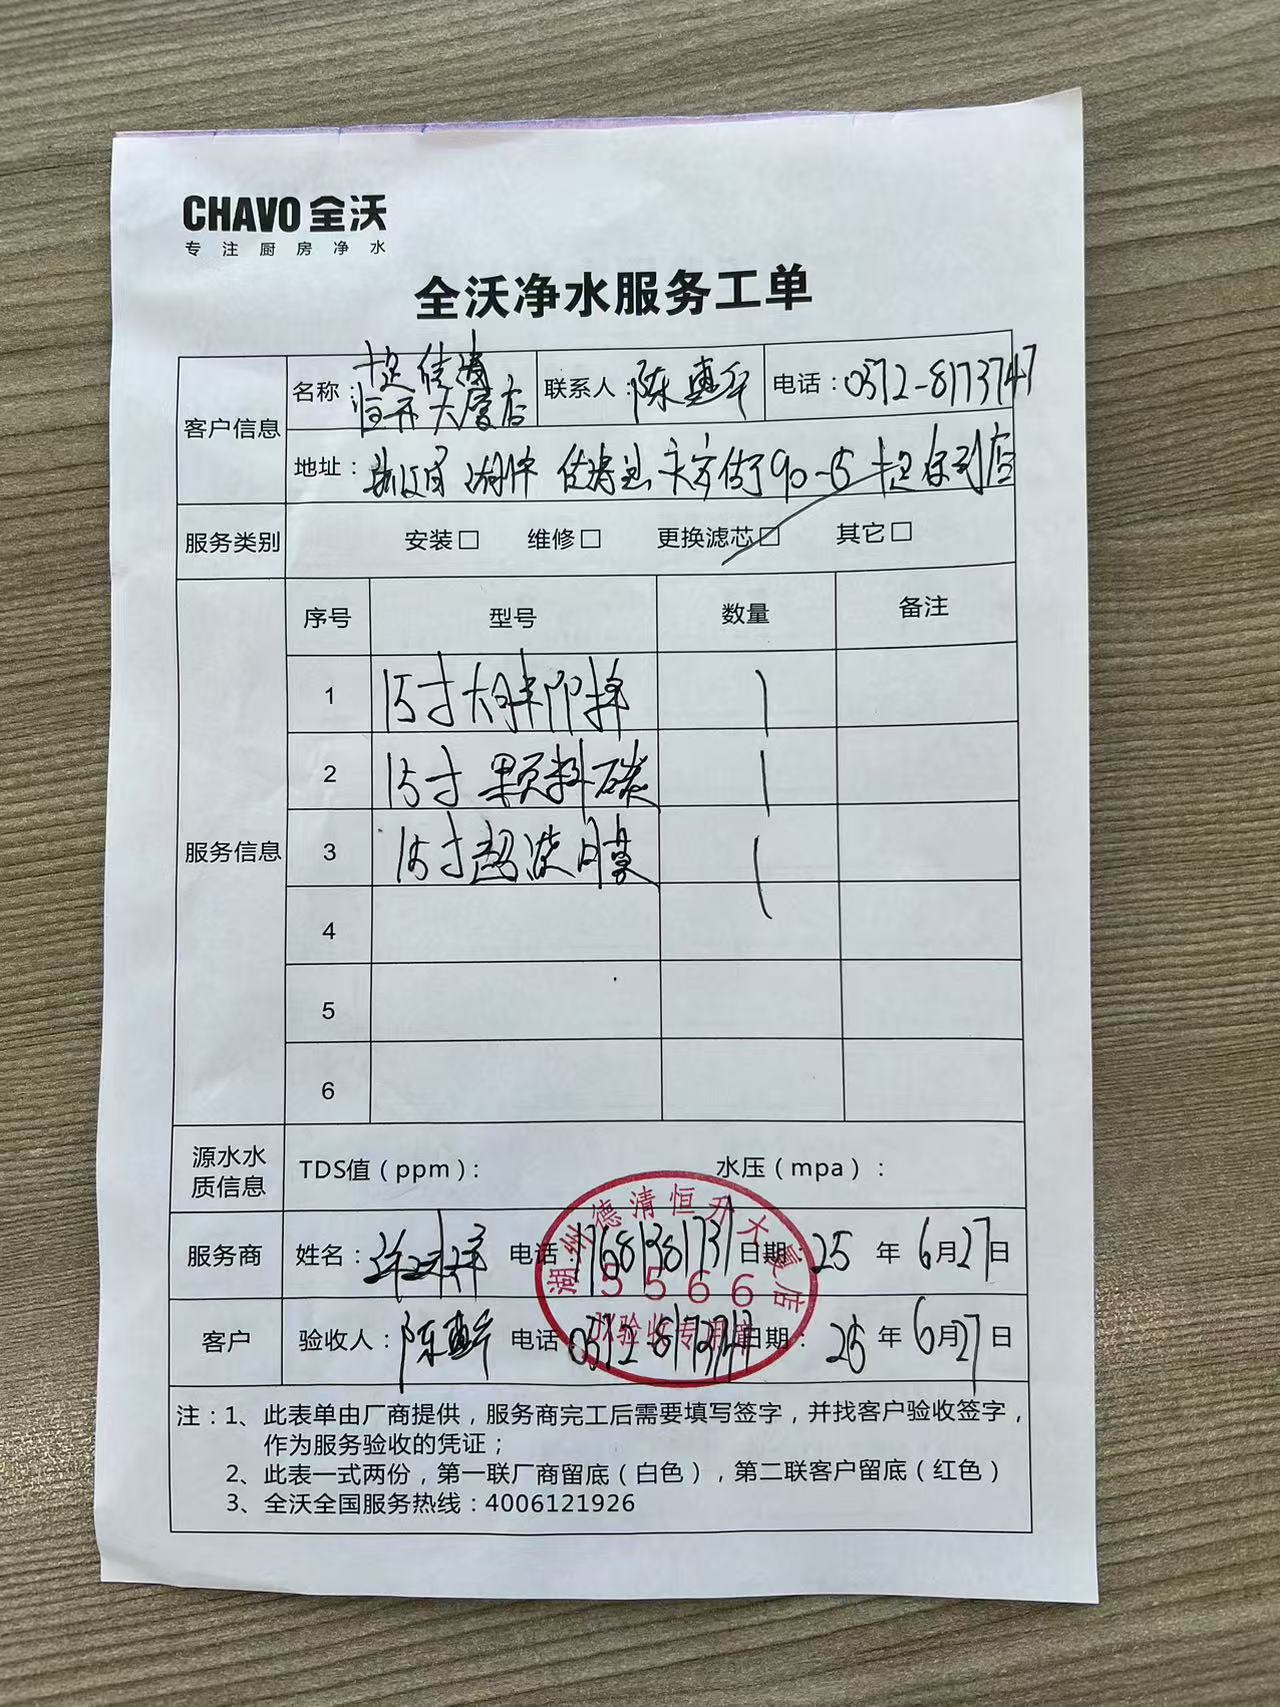 CHAVO 全沃
专注厨房净水
全沃净水服务工单
客户信息
名称：十足德清
恒升大厦店
联系人：陈惠平
电话：0572-8173747
地址：90-5
服务类别 安装□ 维修□ 更换滤芯☑ 其它□
服务信息
序号 型号 数量 备注
1 15寸大胖PP棉 1
2 15寸颗粒碳 1
3 15寸超滤膜 1
4
5
6
源水水质信息 TDS值（ppm）： 水压（mpa）：
服务商 姓名： 电话：17681381731 日期：25 年 6月27日
客户 验收人：陈惠平 电话：0572-8173747 日期：25 年 6月27日
湖州德清恒升大厦店
5566
验收专用章
注：1、此表单由厂商提供，服务商完工后需要填写签字，并找客户验收签字，
作为服务验收的凭证；
2、此表一式两份，第一联厂商留底（白色），第二联客户留底（红色）
3、全沃全国服务热线：4006121926